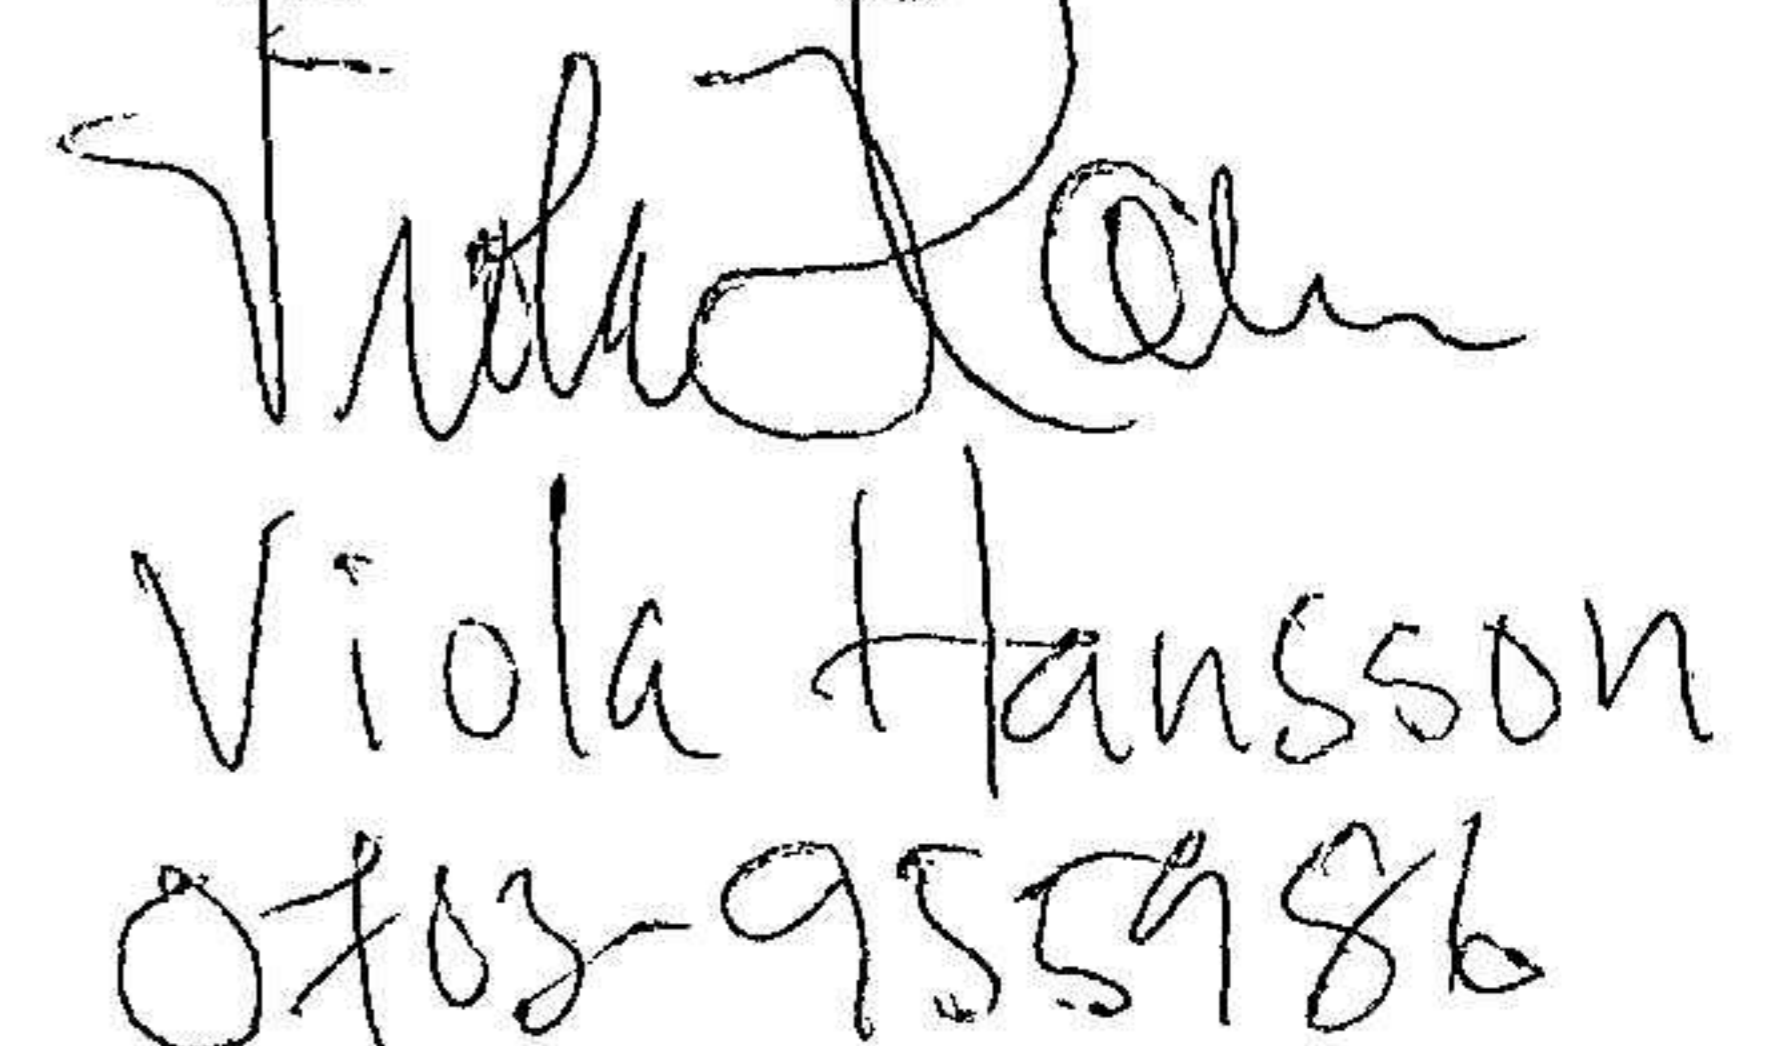 Viola
Viola Hansson
0703-955986